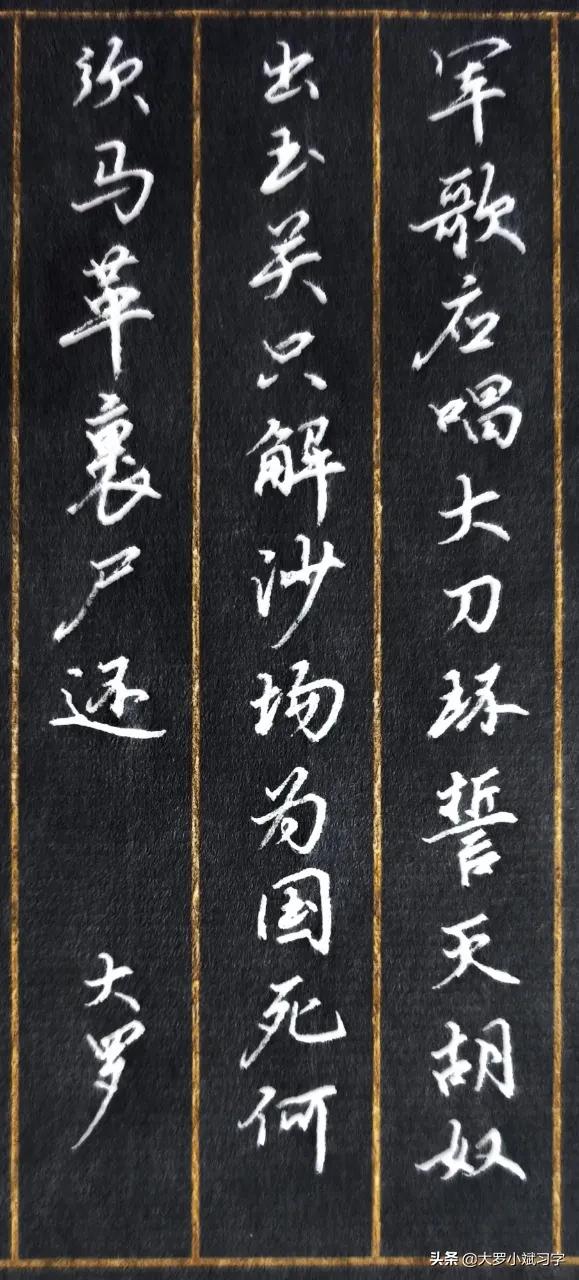 军歌应唱大刀环誓灭胡奴
出玉关只解沙场为国死何
须马革裹尸还
大罗
头条 @大罗小斌习字